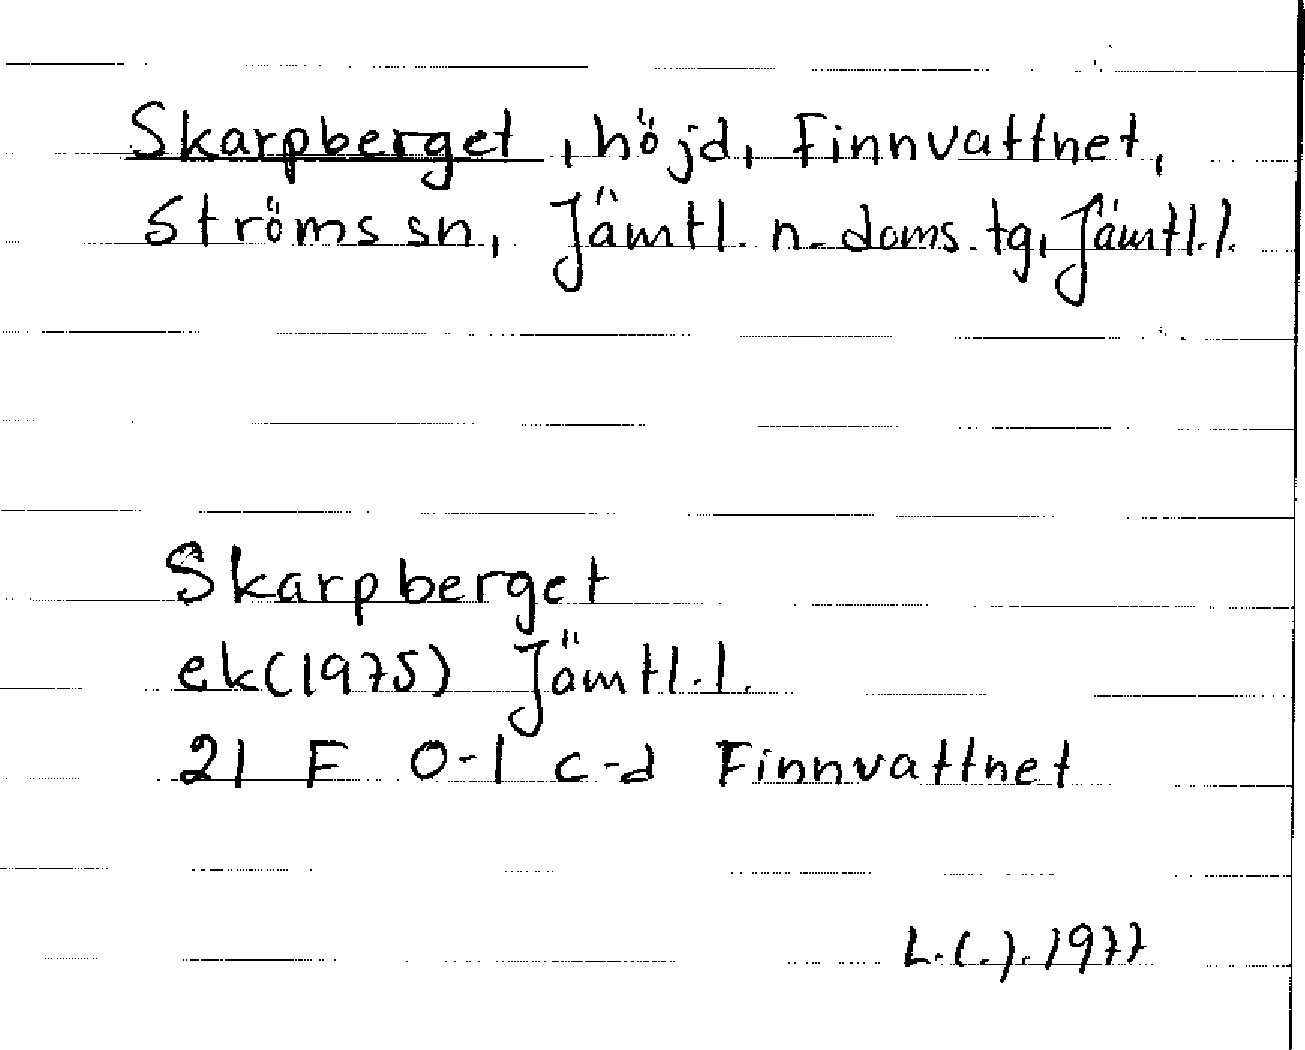 Skarpberget, höjd, Finnvattnet,
Ströms sn, Jämtl. n. doms. tg, Jämtl. l.
Skarpberget
ek (1975) Jämtl. l.
21 F 0-1 c-d Finnvattnet
1977